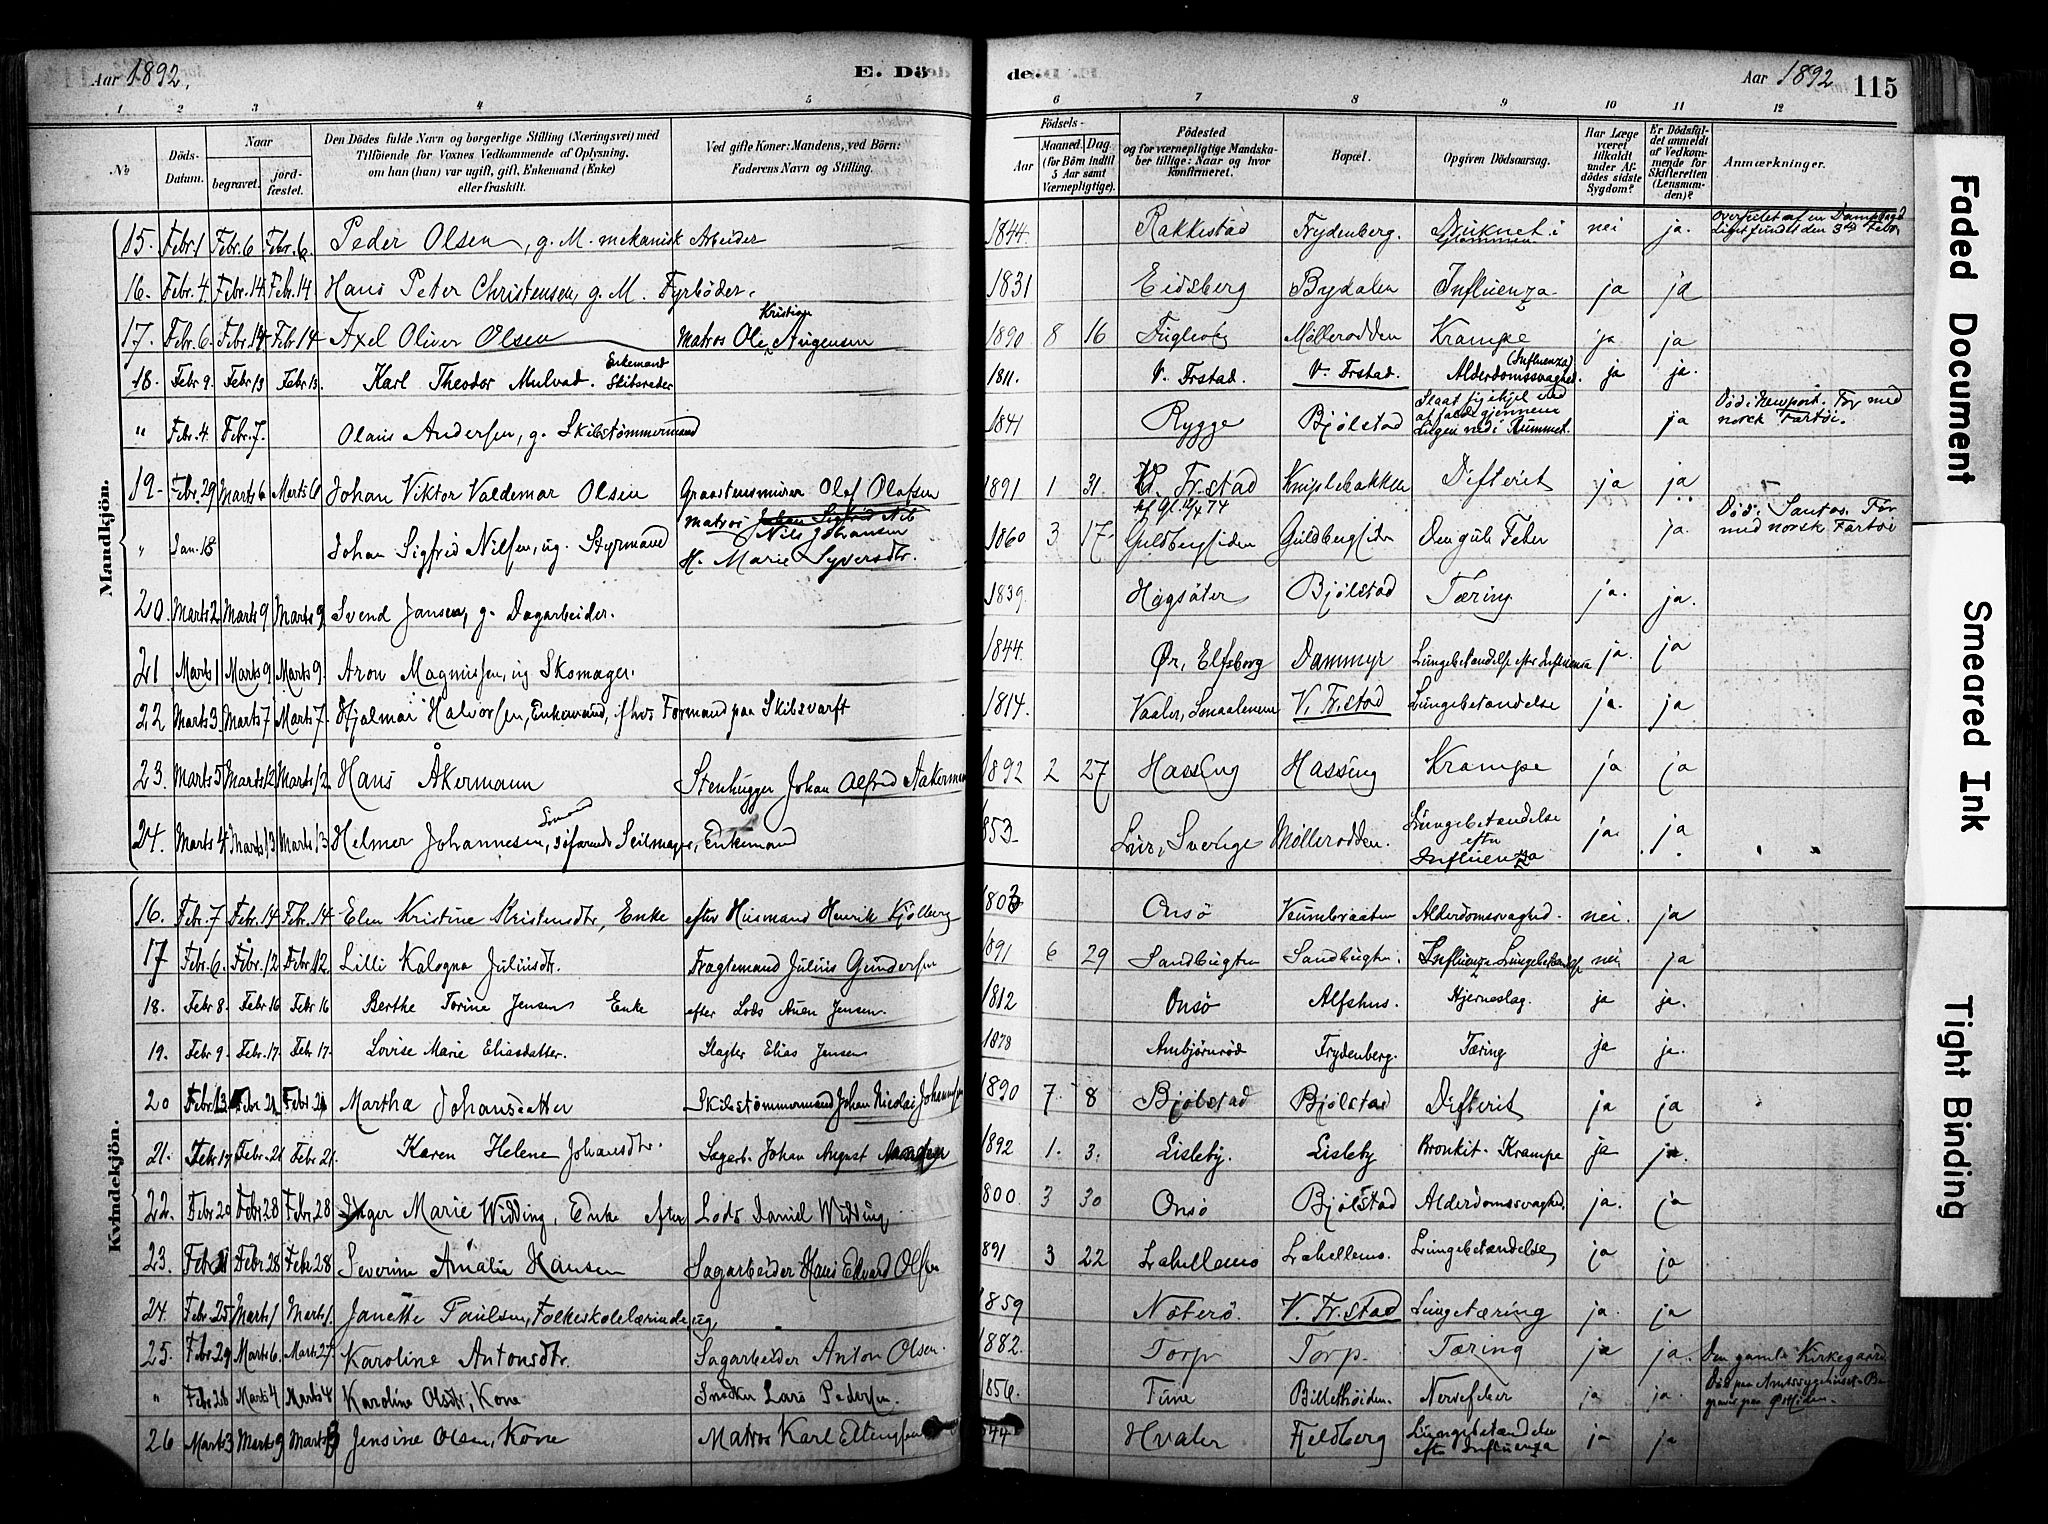 Aar 1892. E. Döde. Aar 1892 115
1 2 3 4 5 6 7 8 9 10 11 12
No Döds-Datum. Naar begravet. jordfæstet. Den Dödes fulde Navn og borgerlige Stilling (Næringsvei) med Tilföiende for Voxnes Vedkommende af Oplysning, om han (hun) var ugift, gift, Enkemand (Enke) eller fraskilt. Ved gifte Koner: Mandens, ved Börn: Faderens Navn og Stilling. Födsels- Aar Maaned. Dag (for Börn indtil 5 Aar samt Værnepligtige). Födested og for værnepligtige Mandskaber tillige: Naar og hvor konfirmeret. Bopæl. Opgiven Dödsaarsag. Har Læge været tilkaldt under Afdödes sidste Sygdom? Er Dödsfaldet anmeldt af Vedkommende for Skifteretten (Lensmanden)? Anmærkninger.
Mandkjön.
15. Febr. 1 Febr. 6 Febr. 6. Peder Olsen, g. M. mekanisk Arbeider 1844. Rakkestad Frydenberg. Druknet i Glommen nei ja. Overseilet af en Liget fundet den 3die Febr.
16. Febr. 4 Febr. 14 Febr. 14 Hans Peter Christensen, g. M. Fyrbøder. 1831 Eidsberg Brydalen Influenza ja ja
17. Febr. 6 Febr. 14 Febr. 14 Axel Oliver Olsen Matros Ole Kristian Augensen 1890 8 16 Fuglevig Møllerodden Krampe ja ja
18. Febr. 9. Febr. 13 Febr. 13. Karl Theodor Mulvad. Enkemand Skibsreder 1811. V. Frstad. V. Frstad. Alderdomssvaghed. (Influenza) ja ja.
" Febr. 4. Febr. 7. Olaus Andersen, g. Skibstømmermand 1841 Rygge Bjølstad Slaat sig ihjel ved at falde gjennem Lugen ned i Rummet. ja Død i Newport. For med norsk Fartøi.
19. Febr. 29 Marts 6 Marts 6 Johan Viktor Valdemar Olsen Graastensmurer Olaf Olafsen 1891 1 31. V. Fr.stad Kniplebakken Difterit ja ja
" Jan. 18 Johan Sigfrid Nilsen, ug. Styrmand Matros Nils Johansen H. Marie Syversdtr. 1860 3 17 Guldbergsiden Guldbergsiden Den gule Feber ja. Død i Santos. For med norsk Fartøi
20. Marts 2 Marts 9 Marts 9. Svend Jansen, g. Dagarbeider. 1839. Høgsäter Bjølstad Tæring ja. ja.
21 Marts 1 Marts 9 Marts 9. Aron Magnussen, ug Skomager. 1844. Ør, Elfsborg Dammyr Lungebetændelse efter Influenza ja. ja
22 Marts 3. Marts 7 Marts 7. Hjalmar Halvorsen, Enkemand, fhv. Formand paa Skibsværft 1814. Vaaler, Smaalenene V. Fr.stad Lungebetændelse ja. ja
23. Marts 5 Marts 12 Marts 12. Hans Åkermann Stenhugger Johan Alfred Aakermann 1892 2 27 Hassing Hassing Krampe ja ja
24. Marts 4 Marts 13 Marts 13 Helmer Johannesen, Søfarende Seilmager, Enkemand 853. Lur, Sverige Møllerodden. Lungebetændelse efter Influenza ja. ja
Kvindekjön.
16. Febr. 7 Febr. 14 Febr. 14 Elen Kristine Kristensdtr, Enke efter Husmand Henrik Kjølberg 1803 Onsø Veumbraaten Alderdomssvaghed. nei. ja
17 Febr. 6. Febr. 12 Febr. 12. Lilli Kalogna Juliusdtr. Fragtemand Julius Gundersen 891 6 29 Sandbugten Sandbugten. Influenza Lungebetændelse nei ja
18. Febr. 8. Febr. 16 Febr. 16 Berthe Torine Jensen Enke efter Lods Aven Jensen. 1812 Onsø Alfshus. Hjerneslag. ja ja.
19. Febr. 9. Febr. 17. Febr. 17. Lovise Marie Eliasdatter. Slagter Elias Jensen 1878 Ambjørnrød Frydenberg. Tæring ja ja.
20 Febr. 13 Febr. 21 Febr. 21 Martha Johansdatter Skibstømmermand Johan Nicolai Johannesen 1890 7. 8 Bjølstad Bjølstad Difterit ja ja
21. Febr. 17 Febr. 21 Febr. 21. Karen Helene Johansdtr. Sagarb. Johan August 1892 1. 3. Lisleby. Lisleby Bronkit. Krampe ja ja.
22. Febr. 20 Febr. 28 Febr. 28 Inger Marie Widding, Enke efter Lods Daniel Widding 800. 3 30 Onsø Bjølstad Alderdomssvaghed. ja. ja
23. Febr. 21 Febr. 28 Febr. 28 Severine Amalie Hansen Sagarbeider Hans Edvard Olsen 891 3 22 Labellens Labellens. Lungebetændelse ja ja
24. Febr. 25 Marts 1 Marts 1. Janette Paulsen, Folkeskolelærinde, ug. 1859 Nøterø. V. Fr.stad Lungetæring ja. ja
25. Febr. 29 Marts 6. Marts 27 Karoline Antonsdtr. Sagarbeider Anton Olsen. 1882. Torp Torp. Tæring ja ja. Den gamle Kirkegaard
" Febr. 26 Marts 4 Marts 4 Karoline Olsdtr, Kone Snedker Lars Pedersen. 1856. Tune Nervefeber ja ja. Død paa Amtssygehuset. Begravet paa Østsiden.
26 Marts 3 Marts 9 Marts Jensine Olsen, Kone Matros Karl Ellingsen 44 Hvaler Fjeldberg Lungebetændelse efter Influenza ja ja
Faded Document
Smeared Ink
Tight Binding